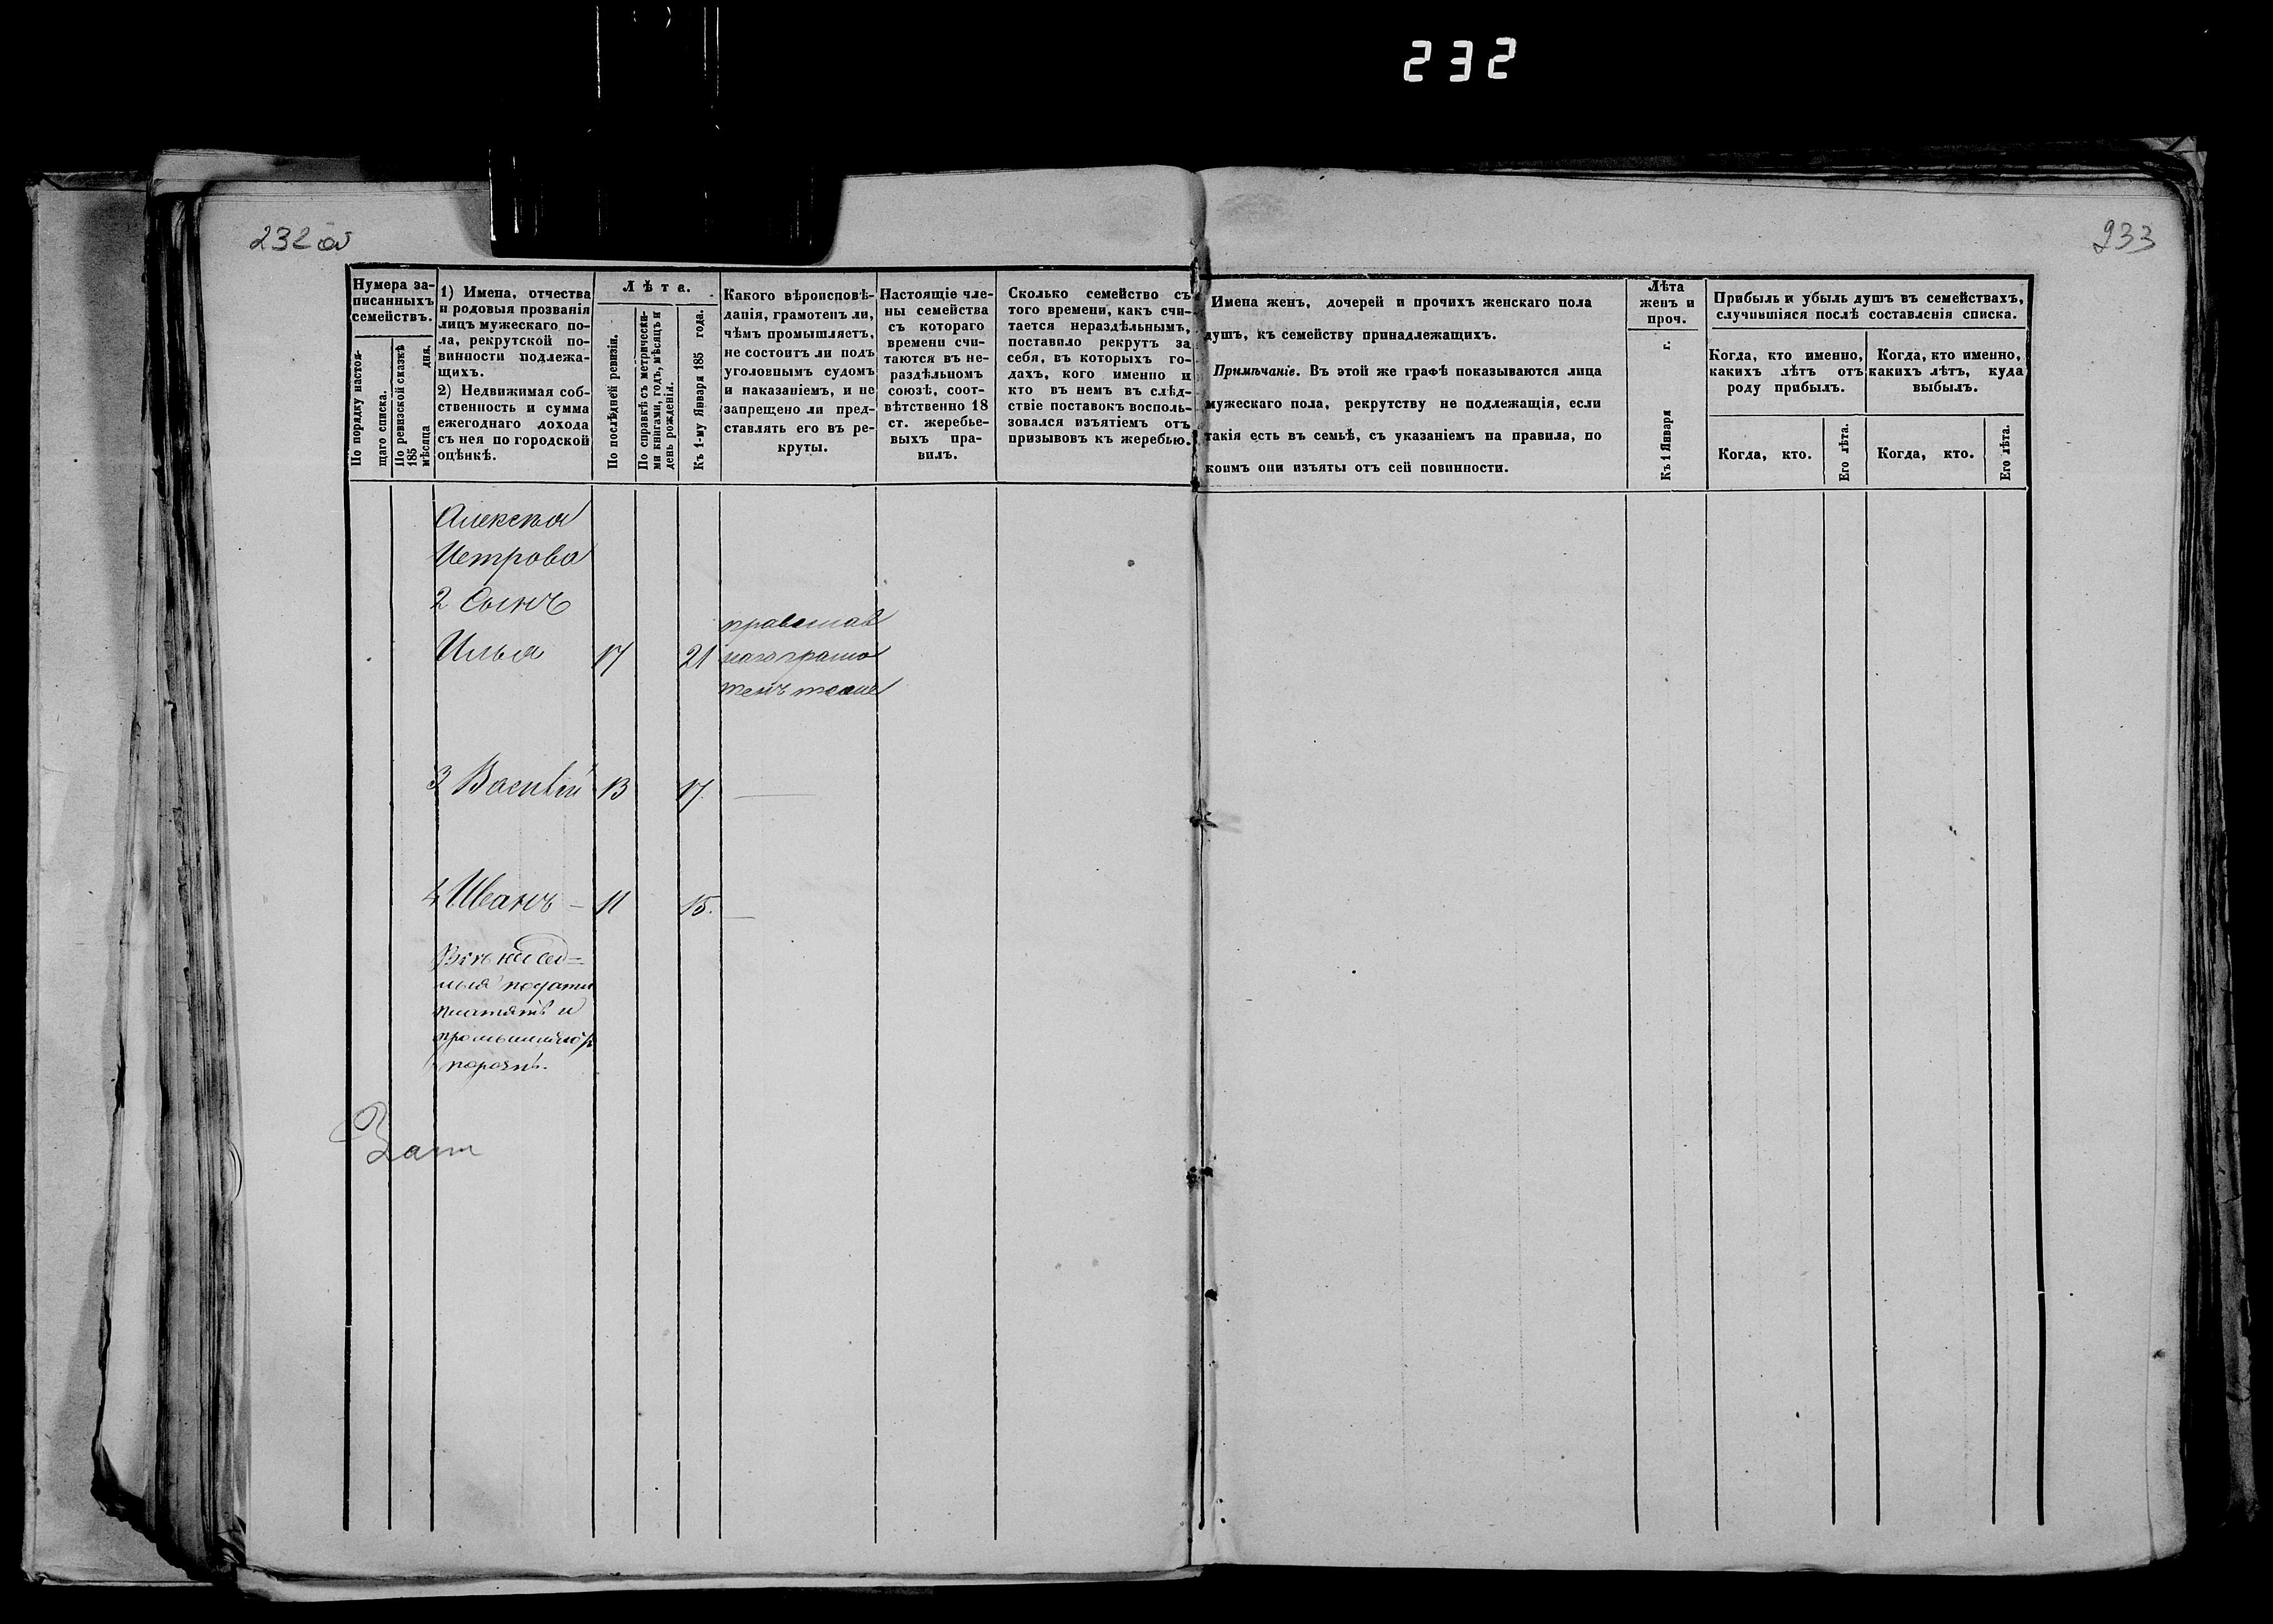 232
232 об
233
Нумера за-
писанныхъ
семействъ.
По порядку настоя-
щаго списка.
По ревизской сказкѣ
185 дня,
мѣсяца
1) Имена, отчества
и родовыя прозванія
лицъ мужескаго по-
ла, рекрутской по-
винности подлежа-
щихъ.
2) Недвижимая соб-
ственность и сумма
ежегоднаго дохода
съ нея по городской
оцѣнкѣ.
Лѣта.
По послѣдней ревизіи.
По справкѣ съ метрически-
ми книгами, годъ, мѣсяцъ и
день рожденія.
Къ 1-му Января 185 года.
Какого вѣроисповѣ-
данія, грамотенъ ли,
чѣмъ промышляетъ,
не состоитъ ли подъ
уголовнымъ судомъ
и наказаніемъ, и не
запрещено ли пред-
ставлять его въ ре-
круты.
Настоящіе чле-
ны семейства
съ котораго
времени счи-
таются въ не-
раздѣльномъ
союзѣ, соот-
вѣтственно 18
ст. жеребье-
выхъ пра-
вилъ.
Сколько семейство съ
того времени, какъ счи-
тается нераздѣльнымъ,
поставило рекрутъ за
себя, въ которыхъ го-
дахъ, кого именно и
кто въ немъ въ слѣд-
ствіе поставокъ восполь-
зовался изъятіемъ отъ
призывовъ къ жеребью.
Имена женъ, дочерей и прочихъ женскаго пола
душъ, къ семейству принадлежащихъ.
Примѣчаніе. Въ этой же графѣ показываются лица
мужескаго пола, рекрутству не подлежащія, если
такія есть въ семьѣ, съ указаніемъ на правила, по
коимъ они изъяты отъ сей повинности.
Лѣта
женъ и
проч.
Къ 1 Января г.
Прибыль и убыль душъ въ семействахъ,
случившіяся послѣ составленія списка.
Когда, кто именно,
какихъ лѣтъ отъ
роду прибылъ.
Когда, кто именно,
какихъ лѣтъ, куда
выбылъ.
Когда, кто.
Его лѣта.
Когда, кто.
Его лѣта.
Алексѣя
Петрова
2 Сынъ
Илья 17 21
православ
наго грамо
тенъ
3 Василій 13 17.
4 Иванъ – 11 15.
подати
платятъ и